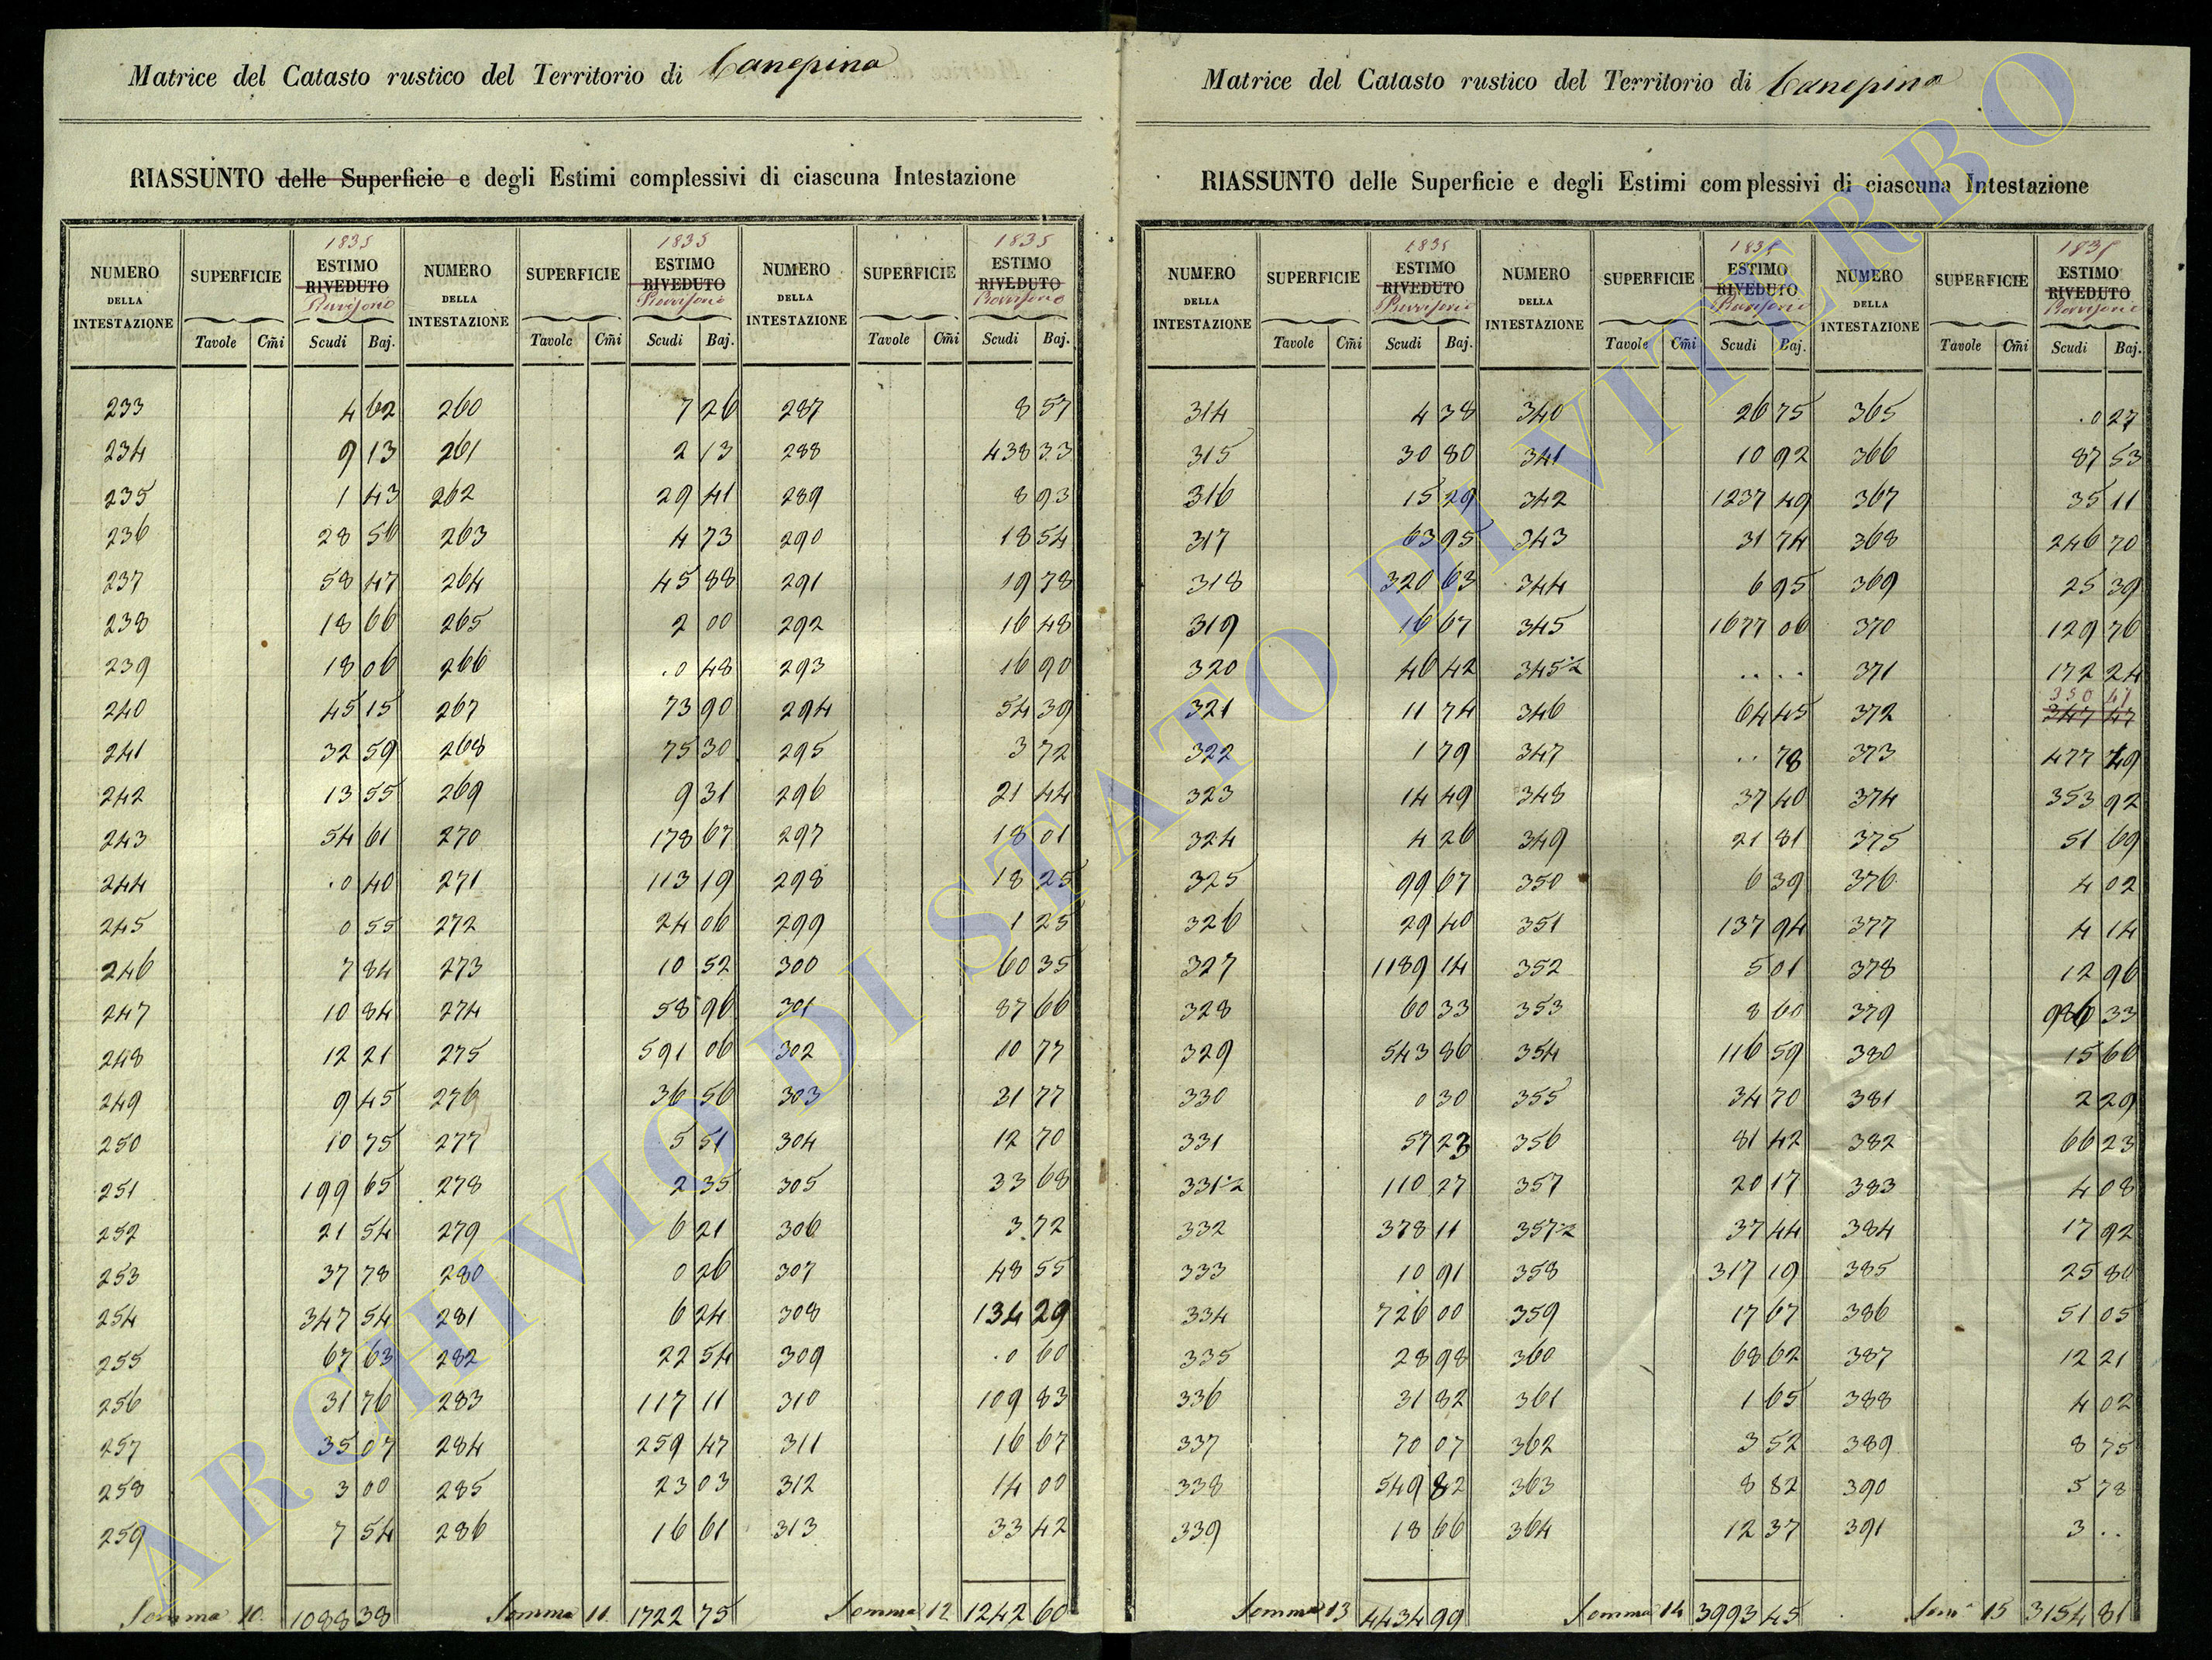 Matrice del Catasto rustico del Territorio di Canepina
RIASSUNTO delle Superficie e degli Estimi complessivi di ciascuna Intestazione
1835 1835 1835
NUMERO DELLA INTESTAZIONE SUPERFICIE ESTIMO RIVEDUTO NUMERO DELLA INTESTAZIONE SUPERFICIE ESTIMO RIVEDUTO NUMERO DELLA INTESTAZIONE SUPERFICIE ESTIMO RIVEDUTO
Tavole Cm̃i Scudi Baj. Tavole Cm̃i Scudi Baj. Tavole Cm̃i Scudi Baj.
233 4 62 260 7 26 287 8 57
234 9 13 261 2 13 288 438 33
235 1 43 262 29 41 289 8 93
236 28 56 263 4 73 290 18 54
237 58 47 264 45 88 291 19 78
238 18 66 265 2 00 292 16 48
239 18 06 266 .0 48 293 16 90
240 45 15 267 73 90 294 54 39
241 32 59 268 75 30 295 3 72
242 13 55 269 9 31 296 21 44
243 54 61 270 178 67 297 18 01
244 .0 40 271 113 19 298 18 25
245 0 55 272 24 06 299 1 25
246 7 84 273 10 52 300 60 35
247 10 84 274 58 96 301 87 66
248 12 21 275 591 06 302 10 77
249 9 45 276 36 56 303 31 77
250 10 75 277 5 51 304 12 70
251 199 65 278 2 35 305 33 68
252 21 54 279 6 21 306 3 72
253 37 78 280 0 26 307 48 55
254 347 54 281 6 24 308 134 29
255 67 63 282 22 54 309 .0 60
256 31 76 283 117 11 310 109 83
257 35 07 284 259 47 311 16 67
258 3 00 285 23 03 312 14 00
259 7 54 286 16 61 313 33 42
Somma 10. 1088 38 Somma 11. 1722 75 Somma 12 1242 60
Matrice del Catasto rustico del Territorio di Canepina
RIASSUNTO delle Superficie e degli Estimi complessivi di ciascuna Intestazione
1835 1835 1835
NUMERO DELLA INTESTAZIONE SUPERFICIE ESTIMO RIVEDUTO NUMERO DELLA INTESTAZIONE SUPERFICIE ESTIMO RIVEDUTO NUMERO DELLA INTESTAZIONE SUPERFICIE ESTIMO RIVEDUTO
Tavole Cm̃i Scudi Baj. Tavole Cm̃i Scudi Baj. Tavole Cm̃i Scudi Baj.
314 4 38 340 26 75 365 .0 27
315 30 80 341 10 92 366 87 53
316 15 29 342 1237 49 367 35 11
317 63 95 343 31 74 368 246 70
318 320 63 344 6 95 369 25 39
319 16 67 345 1677 06 370 129 76
320 46 42 345½ .... 371 172 24
350 47
321 11 74 346 64 45 372 347 47
322 1 79 347 .. 78 373 477 49
323 14 49 348 37 40 374 353 92
324 4 26 349 21 81 375 51 69
325 99 67 350 6 39 376 4 02
326 29 40 351 137 94 377 4 14
327 1189 14 352 5 01 378 12 96
328 60 33 353 8 60 379 986 33
329 543 86 354 116 59 380 15 66
330 0 30 355 34 70 381 2 29
331 57 23 356 81 42 382 66 23
331½ 110 27 357 20 17 383 4 08
332 378 11 357½ 37 44 384 17 92
333 10 91 358 317 19 385 25 80
334 726 00 359 17 67 386 51 05
335 28 98 360 68 62 387 12 21
336 31 82 361 1 65 388 4 02
337 70 07 362 3 52 389 8 75
338 549 82 363 8 82 390 5 78
339 18 66 364 12 37 391 3 ..
Somma 13 4434 99 Somma 14 3993 45 Som.a 15 3154 81
ARCHIVIO DI STATO DI VITERBO